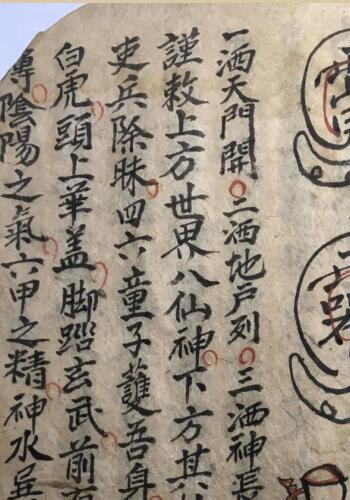 一洒天門開二洒地戶列三洒神長
謹敕上方世界八仙神下方其
吏兵除昧四六童子護吾身
白虎頭上華盖脚踏玄武前
專陰陽之氣六甲之精神水